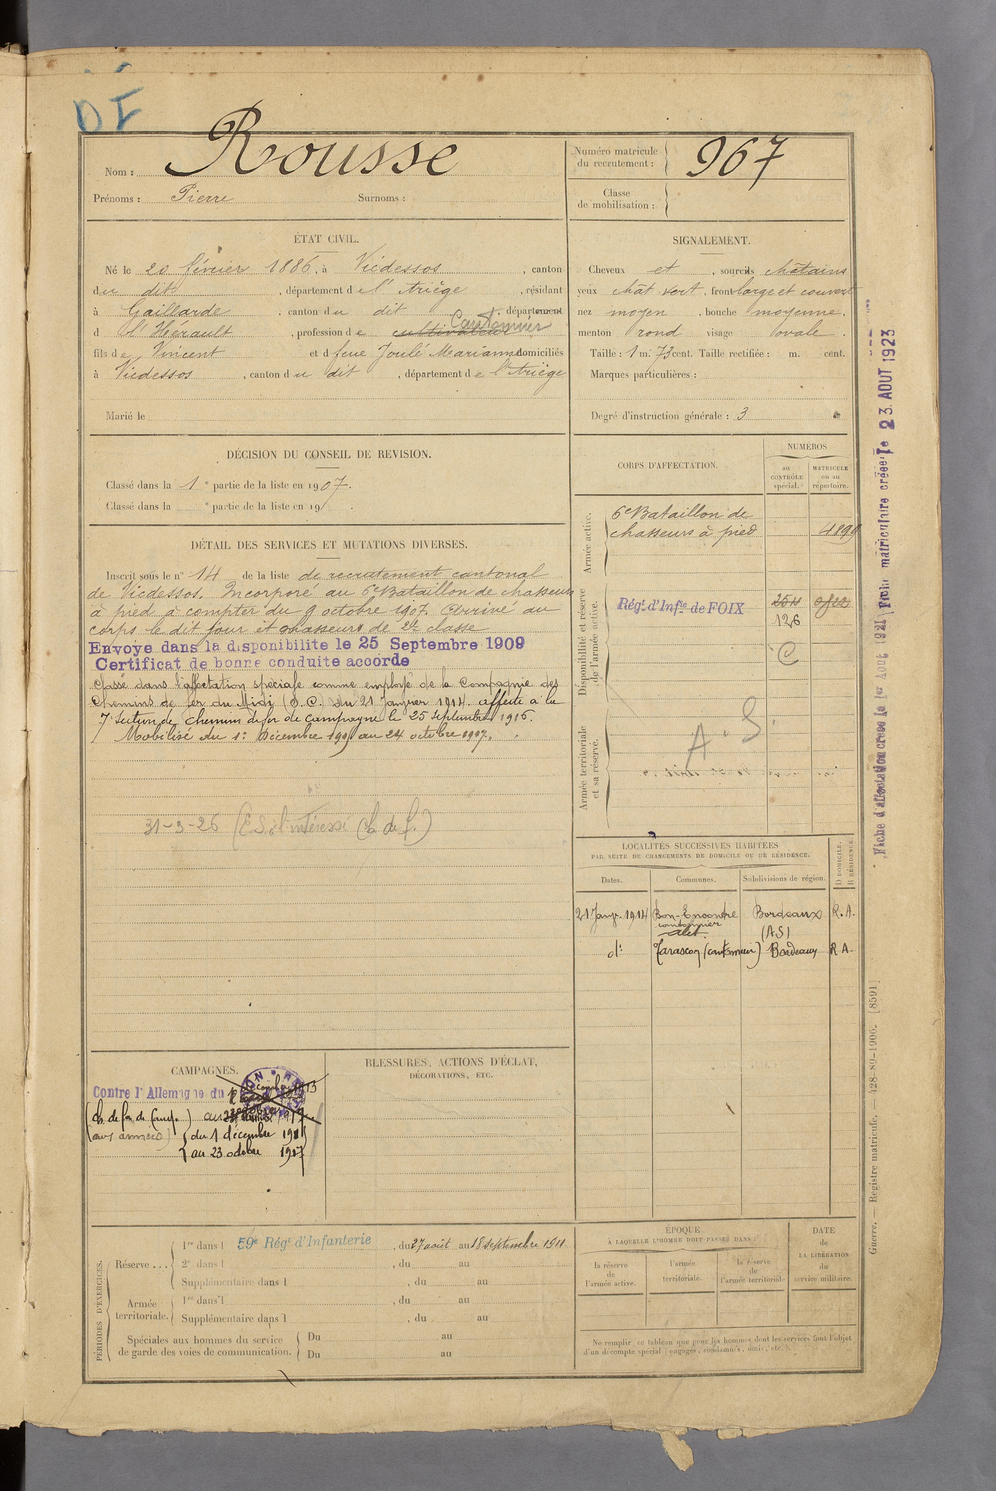 DF
Nom : Rousse
Prénoms : Pierre Surnoms :
Numéro matricule du recrutement : 967
Classe de mobilisation :
ÉTAT CIVIL.
Né le 20 février 1886, à Vicdessos, canton
du dit, département de l'Ariège, résidant
à Gaillarde, canton du dit, département
d l'Hérault, profession de cultivateur Cantonnier
fils de Vincent et de feue Joulé Marianne domiciliés
à Vicdessos, canton du dit, département de l'Ariège
Marié le
SIGNALEMENT.
Cheveux et, sourcils châtains
yeux chât vert, front large et couvert
nez moyen, bouche moyenne,
menton rond visage ovale.
Taille : 1 m. 73 cent. Taille rectifiée : m. cent.
Marques particulières :
Degré d'instruction générale : 3
DÉCISION DU CONSEIL DE REVISION.
Classé dans la 1e partie de la liste en 1907.
Classé dans la e partie de la liste en 19 .
DÉTAIL DES SERVICES ET MUTATIONS DIVERSES.
Inscrit sous le n° 14 de la liste de recrutement cantonal
de Vicdessos. Incorporé au 6e Bataillon de chasseurs
à pied à compter du 9 octobre 1907. Arrivé au
corps le dit jour et chasseur de 2e classe
Envoye dans la disponibilite le 25 Septembre 1909
Certificat de bonne conduite accorde
Classé dans l'affectation spéciale comme employé de la Compagnie des
Chemins de fer du Midi (S.C.) du 21 Janvier 1914. affecté à la
7e Section de chemin de fer de campagne le 25 septembre 1916.
Mobilisé du 1er Décembre au 24 octobre
31-3-26
CORPS D'AFFECTATION.
NUMÉROS
au CONTRÔLE spécial.
MATRICULE ou au répertoire.
Armée active.
6e Bataillon de
chasseurs à pied 4899
Disponibilité et réserve de l'armée active.
Régt d'Infie de FOIX
126
C
Armée territoriale et sa réserve.
A. S.
LOCALITÉS SUCCESSIVES HABITÉES
PAR SUITE DE CHANGEMENTS DE DOMICILE OU DE RÉSIDENCE.
Dates. Communes. Subdivisions de région. D DOMICILE. R RÉSIDENCE.
21 Janv. 1914 Bon-Encontre Bordeaux R.A.
cantonnier (AS)
dt Tarascon (cantonnier) Bordeaux R A
CAMPAGNES.
Contre l'Allemagne du
(Ch. de fer de Camp.) au
(aux armées) du 1 décembre
au 23 octobre
BLESSURES, ACTIONS D'ÉCLAT,
DÉCORATIONS, ETC.
PÉRIODES D'EXERCICES.
Réserve ...
1re dans l 59e Régt d'Infanterie, du 27 août au 18 septembre 1911
2e dans l , du au
Supplémentaire dans l , du au
Armée territoriale.
1re dans l , du au
Supplémentaire dans l , du au
Spéciales aux hommes du service de garde des voies de communication.
Du au
Du au
ÉPOQUE
À LAQUELLE L'HOMME DOIT PASSER DANS :
la réserve de l'armée active.
l'armée territoriale.
la réserve de l'armée territoriale
DATE de LA LIBÉRATION du service militaire.
Ne remplir ce tableau que pour les hommes dont les services font l'objet
d'un décompte spécial (engagés, condamnés, omis, etc.).
Fiche d'affectation créée le 1er Août 1921 Fiche matriculaire créée le 23 AOUT 1923
Guerre. — Registre matricule. — 428-80-1906. [8591]